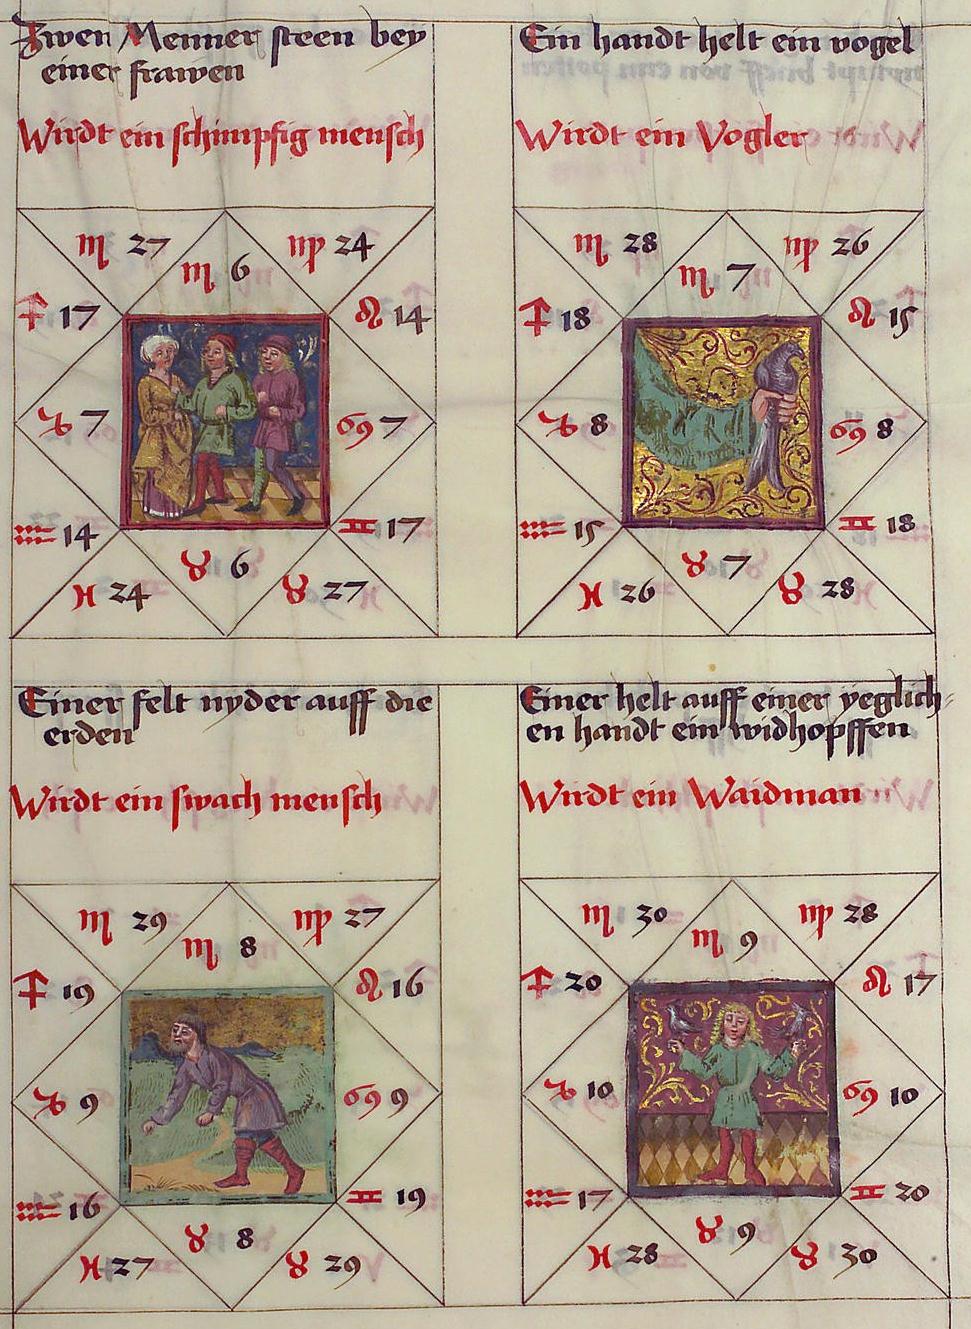 Zwen Menner steen bey
einer frawen
Wirdt ein schimpfig mensch
♏ 27
♏ 6
♍ 24
♐ 17
♌ 14
♑ 7
♋ 7
♒ 14
♊ 17
♓ 24
♉ 6
♉ 27
Ein handt helt ein vogel
Wirdt ein Vogler
♏ 28
♏ 7
♍ 26
♐ 18
♌ 15
♑ 8
♋ 8
♒ 15
♊ 18
♓ 26
♉ 7
♉ 28
Einer felt nyder auff die
erden
Wirdt ein swach mensch
♏ 29
♏ 8
♍ 27
♐ 19
♌ 16
♑ 9
♋ 9
♒ 16
♊ 19
♓ 27
♉ 8
♉ 29
Einer helt auff einer yeglich
en handt ein widhopffen
Wirdt ein Waidman
♏ 30
♏ 9
♍ 28
♐ 20
♌ 17
♑ 10
♋ 10
♒ 17
♊ 20
♓ 28
♉ 9
♉ 30